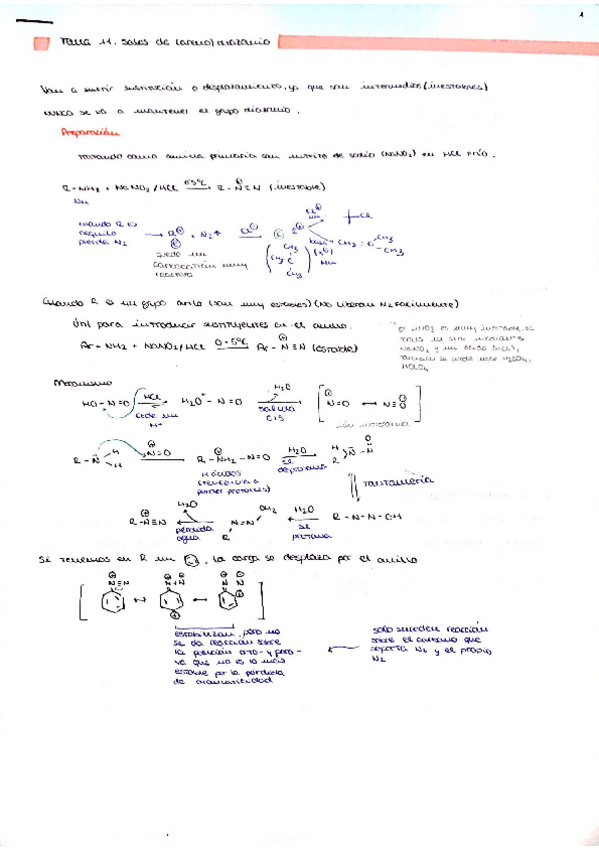 1
Tema 11. Sales de (areno) diazonio
Van a sufrir sustitución o desplazamiento, ya que son intermedios (inestables)
nunca se va a mantener el grupo diazonio.
Preparación
tratando como amina primaria con nitrito de sodio (NaNO2) en HCl frío.
R-NH2 + NaNO2/HCl 0-5ºC R-N≡N (inestable)
cuando R es
alquilo
pierde N2
R⊕ + N2↑
carbocatión muy
reactivo
Cuando R es un grupo arilo (son muy estables) (No liberan N2 facilmente)
Útil para introducir sustituyentes en el anillo.
Ar-NH2 + NaNO2/HCl 0-5ºC Ar-N≡N (estable)
El HNO2 es muy inestable, se
NaNO2 y un ácido (HCl),
también se puede usar H2SO4,
HClO4
Mecanismo
HO-N=O HCl H2O+-N=O H2O N=O ↔ N≡O
cede un
H+
salida
ión nitrosonio
R-N H H N=O R-NH2-N=O H2O
se
desprotona
tautomería
R-N≡N H2O N=N OH2 H2O R-N-N-OH
perdida
agua
se
protona
Si tenemos en R un , la carga se desplaza por el anillo
N≡N ↔ N=N ↔ N=N
estabilizan, pero no
se da reacción sobre
la posición orto- y para-
ya que no es lo más
estable por la pérdida
de aromaticidad
solo suceden reacción
sobre el carbono que
soporta N2 y el propio
N2